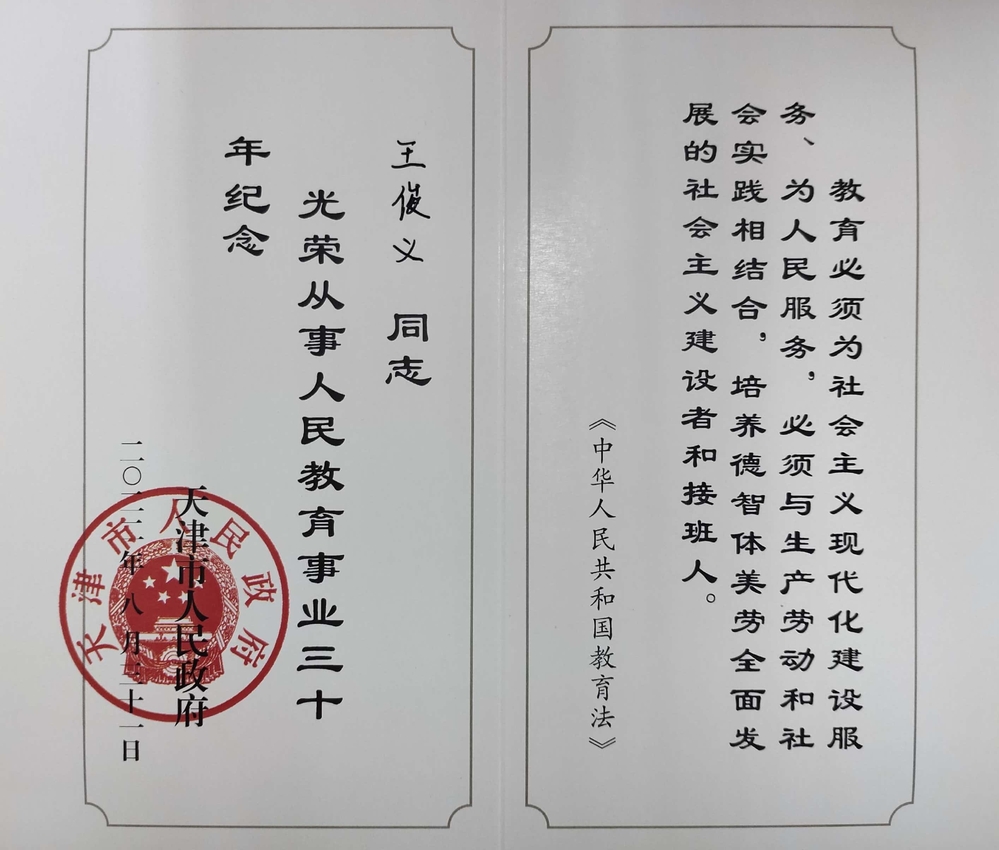 教育必须为社会主义现代化建设服
务、为人民服务，必须与生产劳动和社
会实践相结合，培养德智体美劳全面发
展的社会主义建设者和接班人。
《中华人民共和国教育法》
王俊义 同志
光荣从事人民教育事业三十
年纪念
天津市人民政府
二〇二二年八月三十一日
天津市人民政府